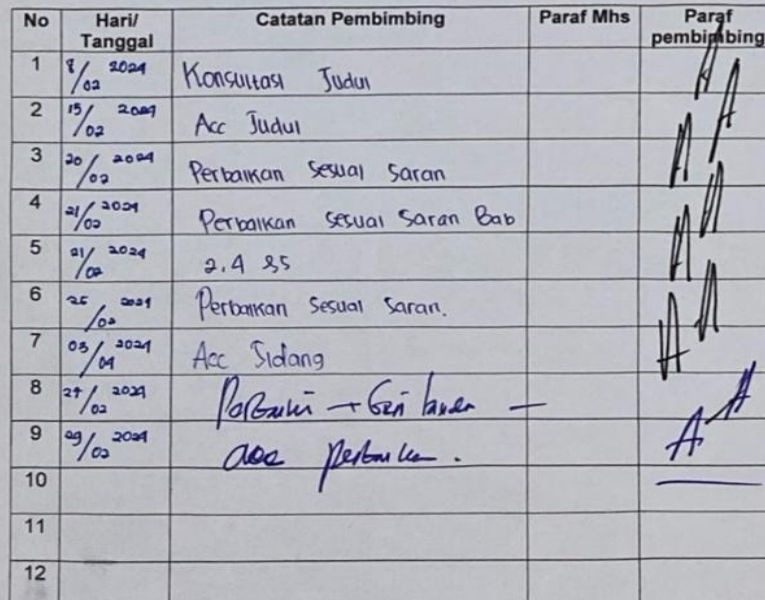 No Hari/ Tanggal Catatan Pembimbing Paraf Mhs Paraf pembimbing
1 8/02 2024 Konsultasi Judul
2 15/02 2024 Acc Judul
3 20/02 2024 Perbaikan Sesuai Saran
4 21/02 2024 Perbaikan Sesuai Saran Bab
5 21/02 2024 2.4 &5
6 25/02 2024 Perbaikan Sesuai Saran.
7 03/04 2024 Acc Sidang
8 27/02 2024
9 29/02 2024 acc
10
11
12